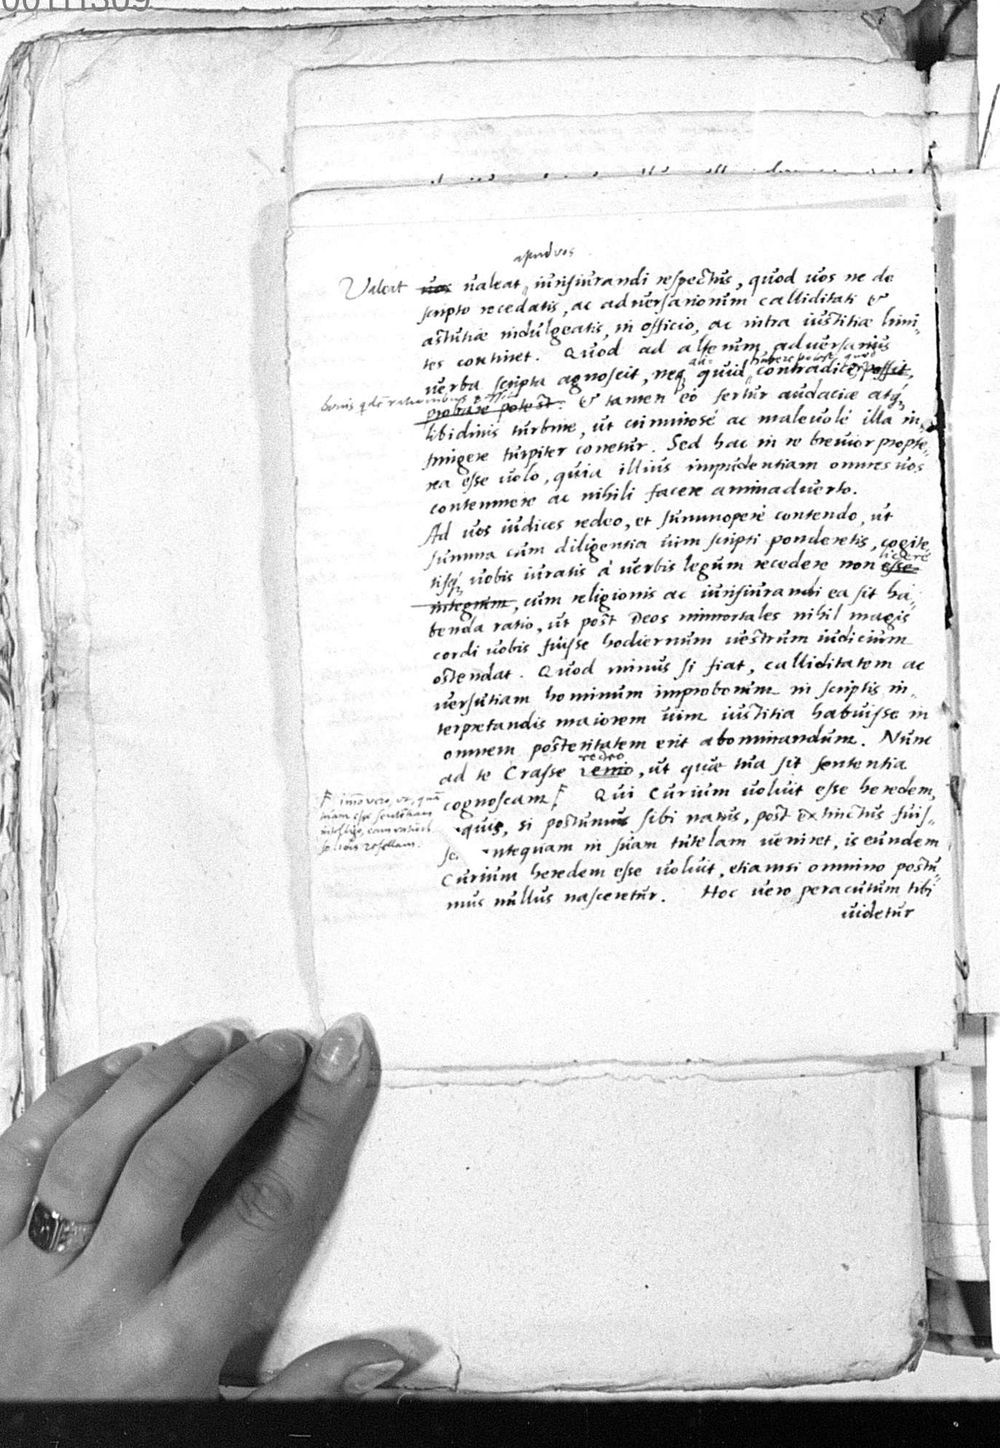 apud vos
Valeat uos ualeat, iurisiurandi respectus, quod uos ne de
scripto recedatis, ac aduersariorum calliditati &
astutiæ indulgeatis, in officio, ac intra iustitiæ limi-
tes continet. Quod ad alterum, aduersarius
habere potest, quod
uerba scripta agnoscit, neq; quid contradicere possit,
bonis
probare potest. & tamen eo fertur audaciæ atq;
libidinis turbine, ut criminosé ac maleuolé illa in-
fringere turpiter conetur. Sed hac in re breuior propte-
rea esse uolo, quia illius imprudentiam omnes uos
contemnere ac nihili facere animaduerto.
Ad uos iudices redeo, et summopere contendo, ut
summa cum diligentia uim scripti ponderetis, cogite-
licere
tisq; uobis iuratis á uerbis legum recedere non esse
integrum, cum religionis ac iurisiurandi ea sit ha-
benda ratio, ut post Deos immortales nihil magis
cordi uobis fuisse hodiernum uestrum iudicium
ostendat. Quod minus si fiat, calliditatem ac
uersutiam hominum improborum in scriptis in-
terpretandis maiorem uim iustitia habuisse in
omnem posteritatem erit abominandum. Nunc
redeo
ad te Crasse uenio, ut quæ tua sit sententia
cognoscam. Qui Curium uoluit esse heredem,
F. immo vero, ut, quam
tuam esse sententiam
intelligo, eam rationibus
refellam.
quis, si postumus sibi natus, post extinctus fuis-
antequam in suam tutelam ueniret, is eundem
Curium heredem esse uoluit, etiamsi omnino postu-
mus nullus nasceretur. Hoc uero peracutum tibi
uidetur